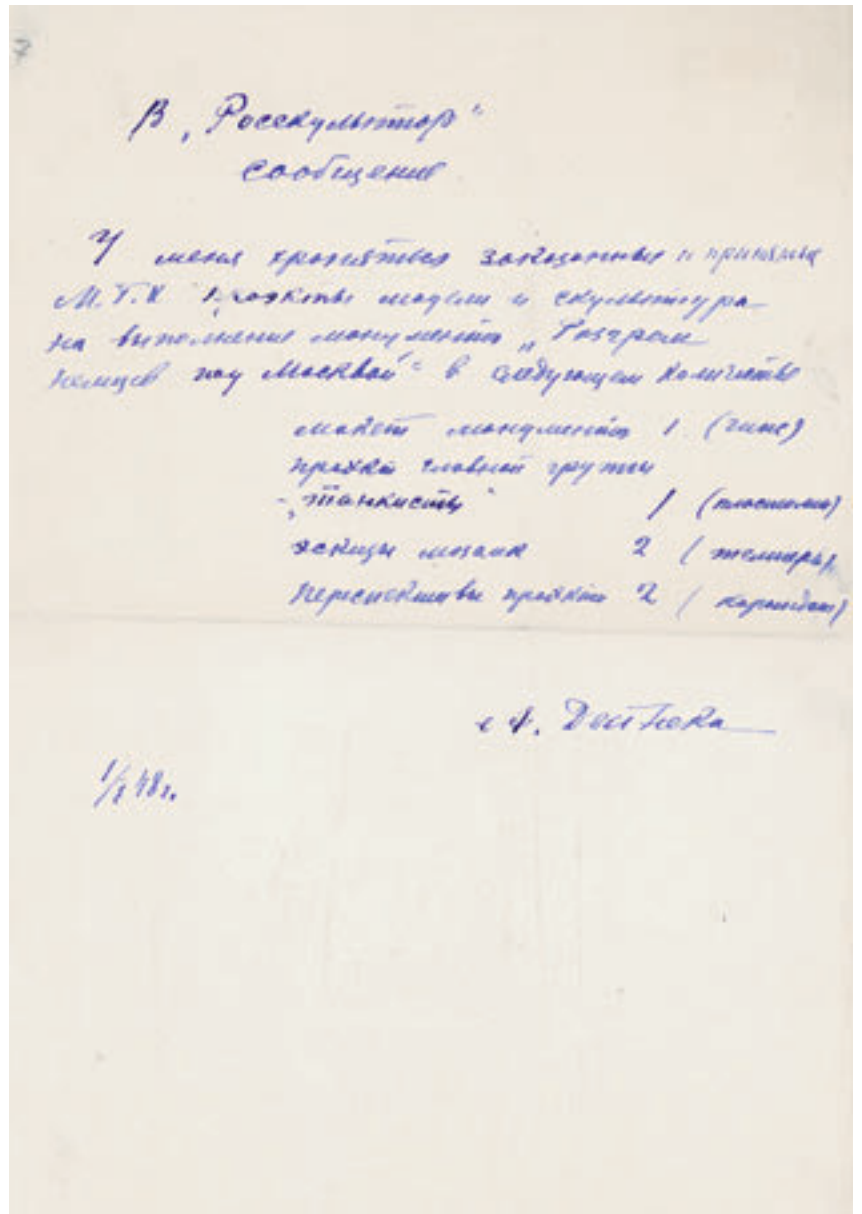 7
В „Росскульптор“
сообщение
У меня хранятся законченные и принятые
М.Т.Х проекты модели и скульптура
на выполнение монумента „Разгром
немцев под Москвой“ в следующем количестве
макет монумента 1 (гипс)
проект главной группы
„танкисты“ 1 (пластилин)
эскизы мозаик 2 (темпера)
перспективы проекта 2 (карандаш)
А. Дейнека
48г.